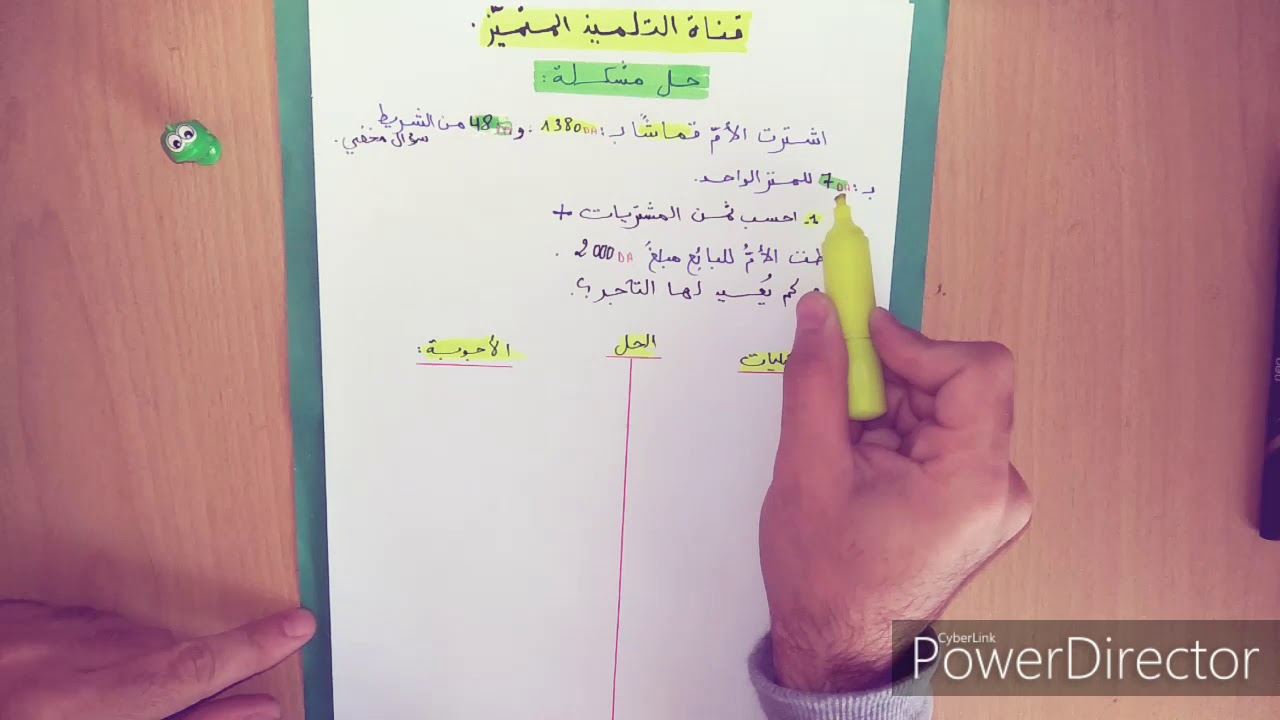 قناة التلميذ المتميّز.
حل مشكلة:
اشترت الأمّ قماشًا بـ: 1380DA. و 48m من الشريط
سؤال مخفي.
بـ: 7DA للمتر الواحد.
1. احسب ثمن المشتريات +
الأمُّ للبائع مبلغَ 2000DA.
كم يُعيد لها التاجر؟.
الحل
الأجوبة:
CyberLink
PowerDirector